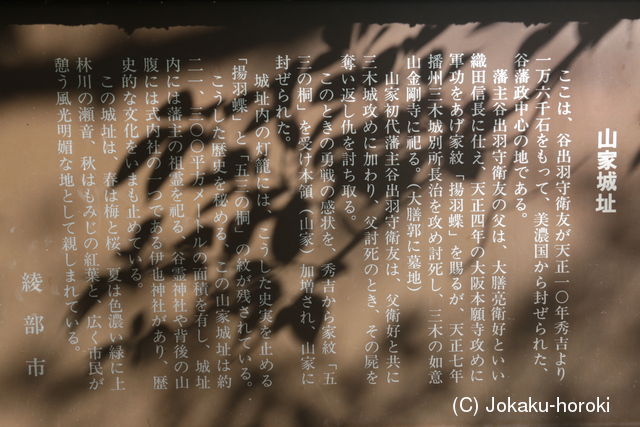 山家城址
ここは、谷出羽守衛友が天正一〇年秀吉より
一万六千石をもって、美濃国から封ぜられた、
谷藩政中心の地である。
藩主谷出羽守衛友の父は、大膳亮衛好といい
織田信長に仕え、天正四年の大阪本願寺攻めに
軍功をあげ家紋「揚羽蝶」を賜るが、天正七年
播州三木城別所長治を攻め討死し、三木の如意
山金剛寺に祀る。(大膳郭に墓地)
山家初代藩主谷出羽守衛友は、父衛好と共に
三木城攻めに加わり、父討死のとき、その屍を
奪い返し仇を討ち取る。
このときの勇戦の感状を、秀吉から家紋「五
三の桐」を受け本領(山家)加増され、山家に
封ぜられた。
城址内の灯籠には、こうした史実を止める
「揚羽蝶」と「五三の桐」の紋が残されている。
こうした歴史を秘める、この山家城址は約
二一、三〇〇平方メートルの面積を有し、城址
内には藩主の祖霊を祀る、谷霊神社や背後の山
腹には式内社の一つである伊也神社があり、歴
史的な文化をいまも止めている。
この城址は、春は梅と桜、夏は色濃い緑に上
林川の瀬音、秋はもみじの紅葉と、広く市民が
憩う風光明媚な地として親しまれている。
綾部市
(C) Jokaku-horoki